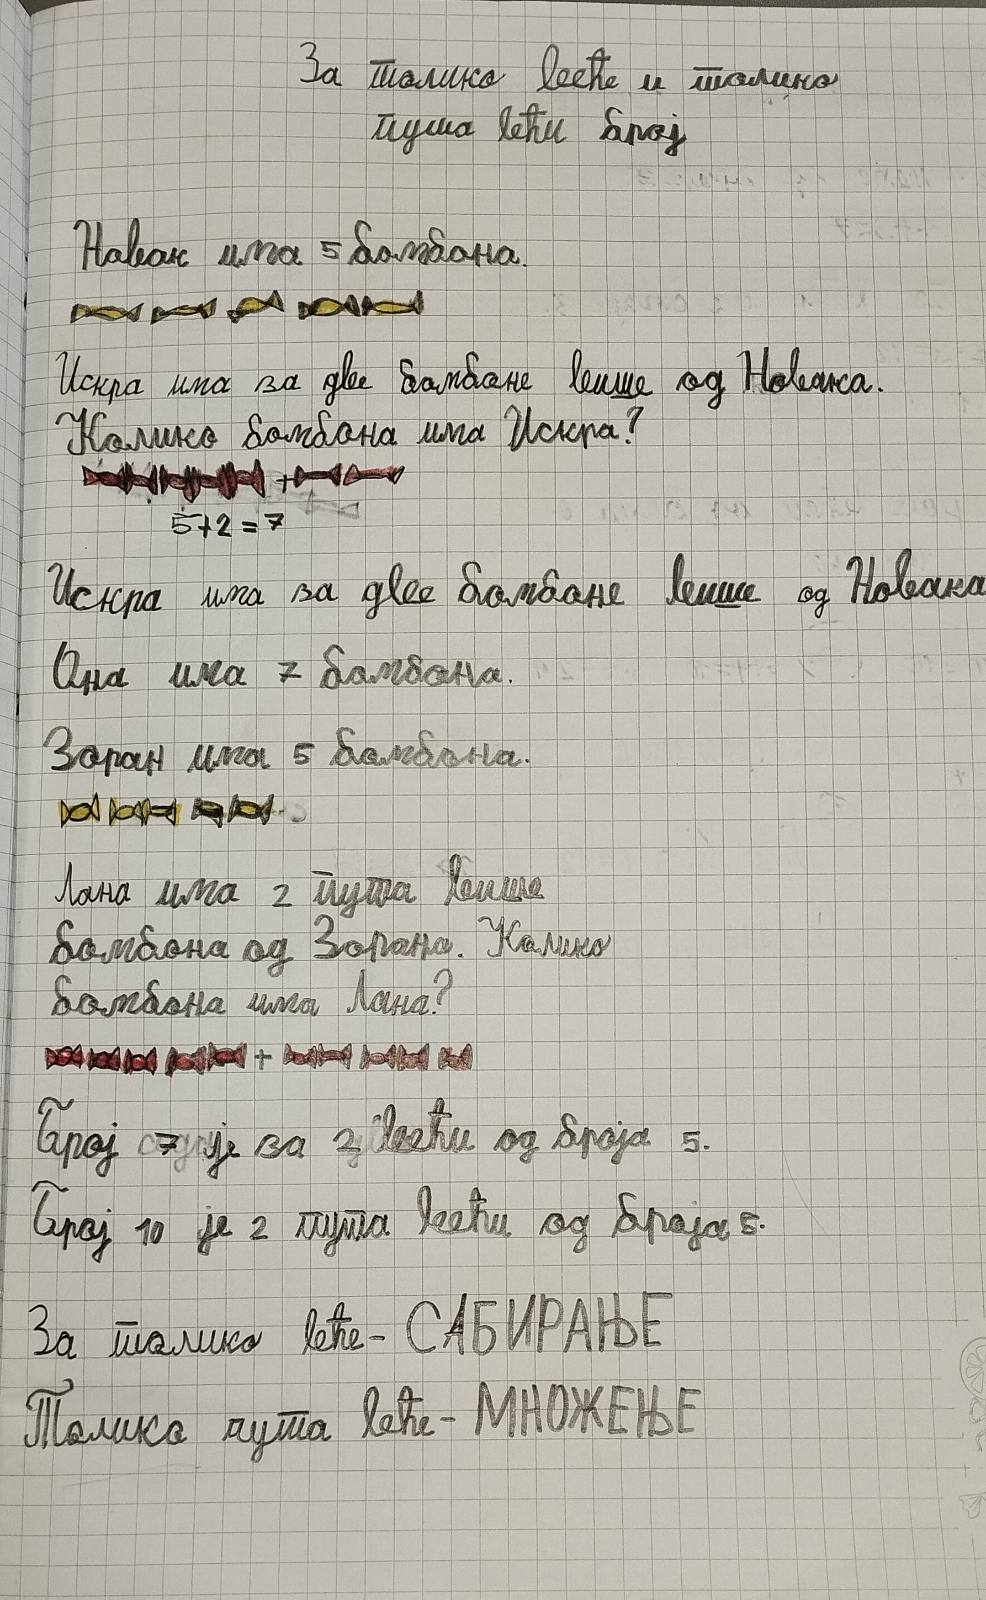 За толико веће и толико
пута већи број
Новак има 5 бомбона.
Искра има за две бомбоне више од Новака.
Колико бомбона има Искра?
+
5+2=7
Искра има за две бомбоне више од Новака
Она има 7 бомбона.
Зоран има 5 бомбона.
Лана има 2 пута више
бомбона од Зорана. Колико
бомбона има Лана?
+
Број 7 је за 2 већи од броја 5.
Број 10 је 2 пута већи од броја 5.
За толико веће - САБИРАЊЕ
Толико пута веће - МНОЖЕЊЕ